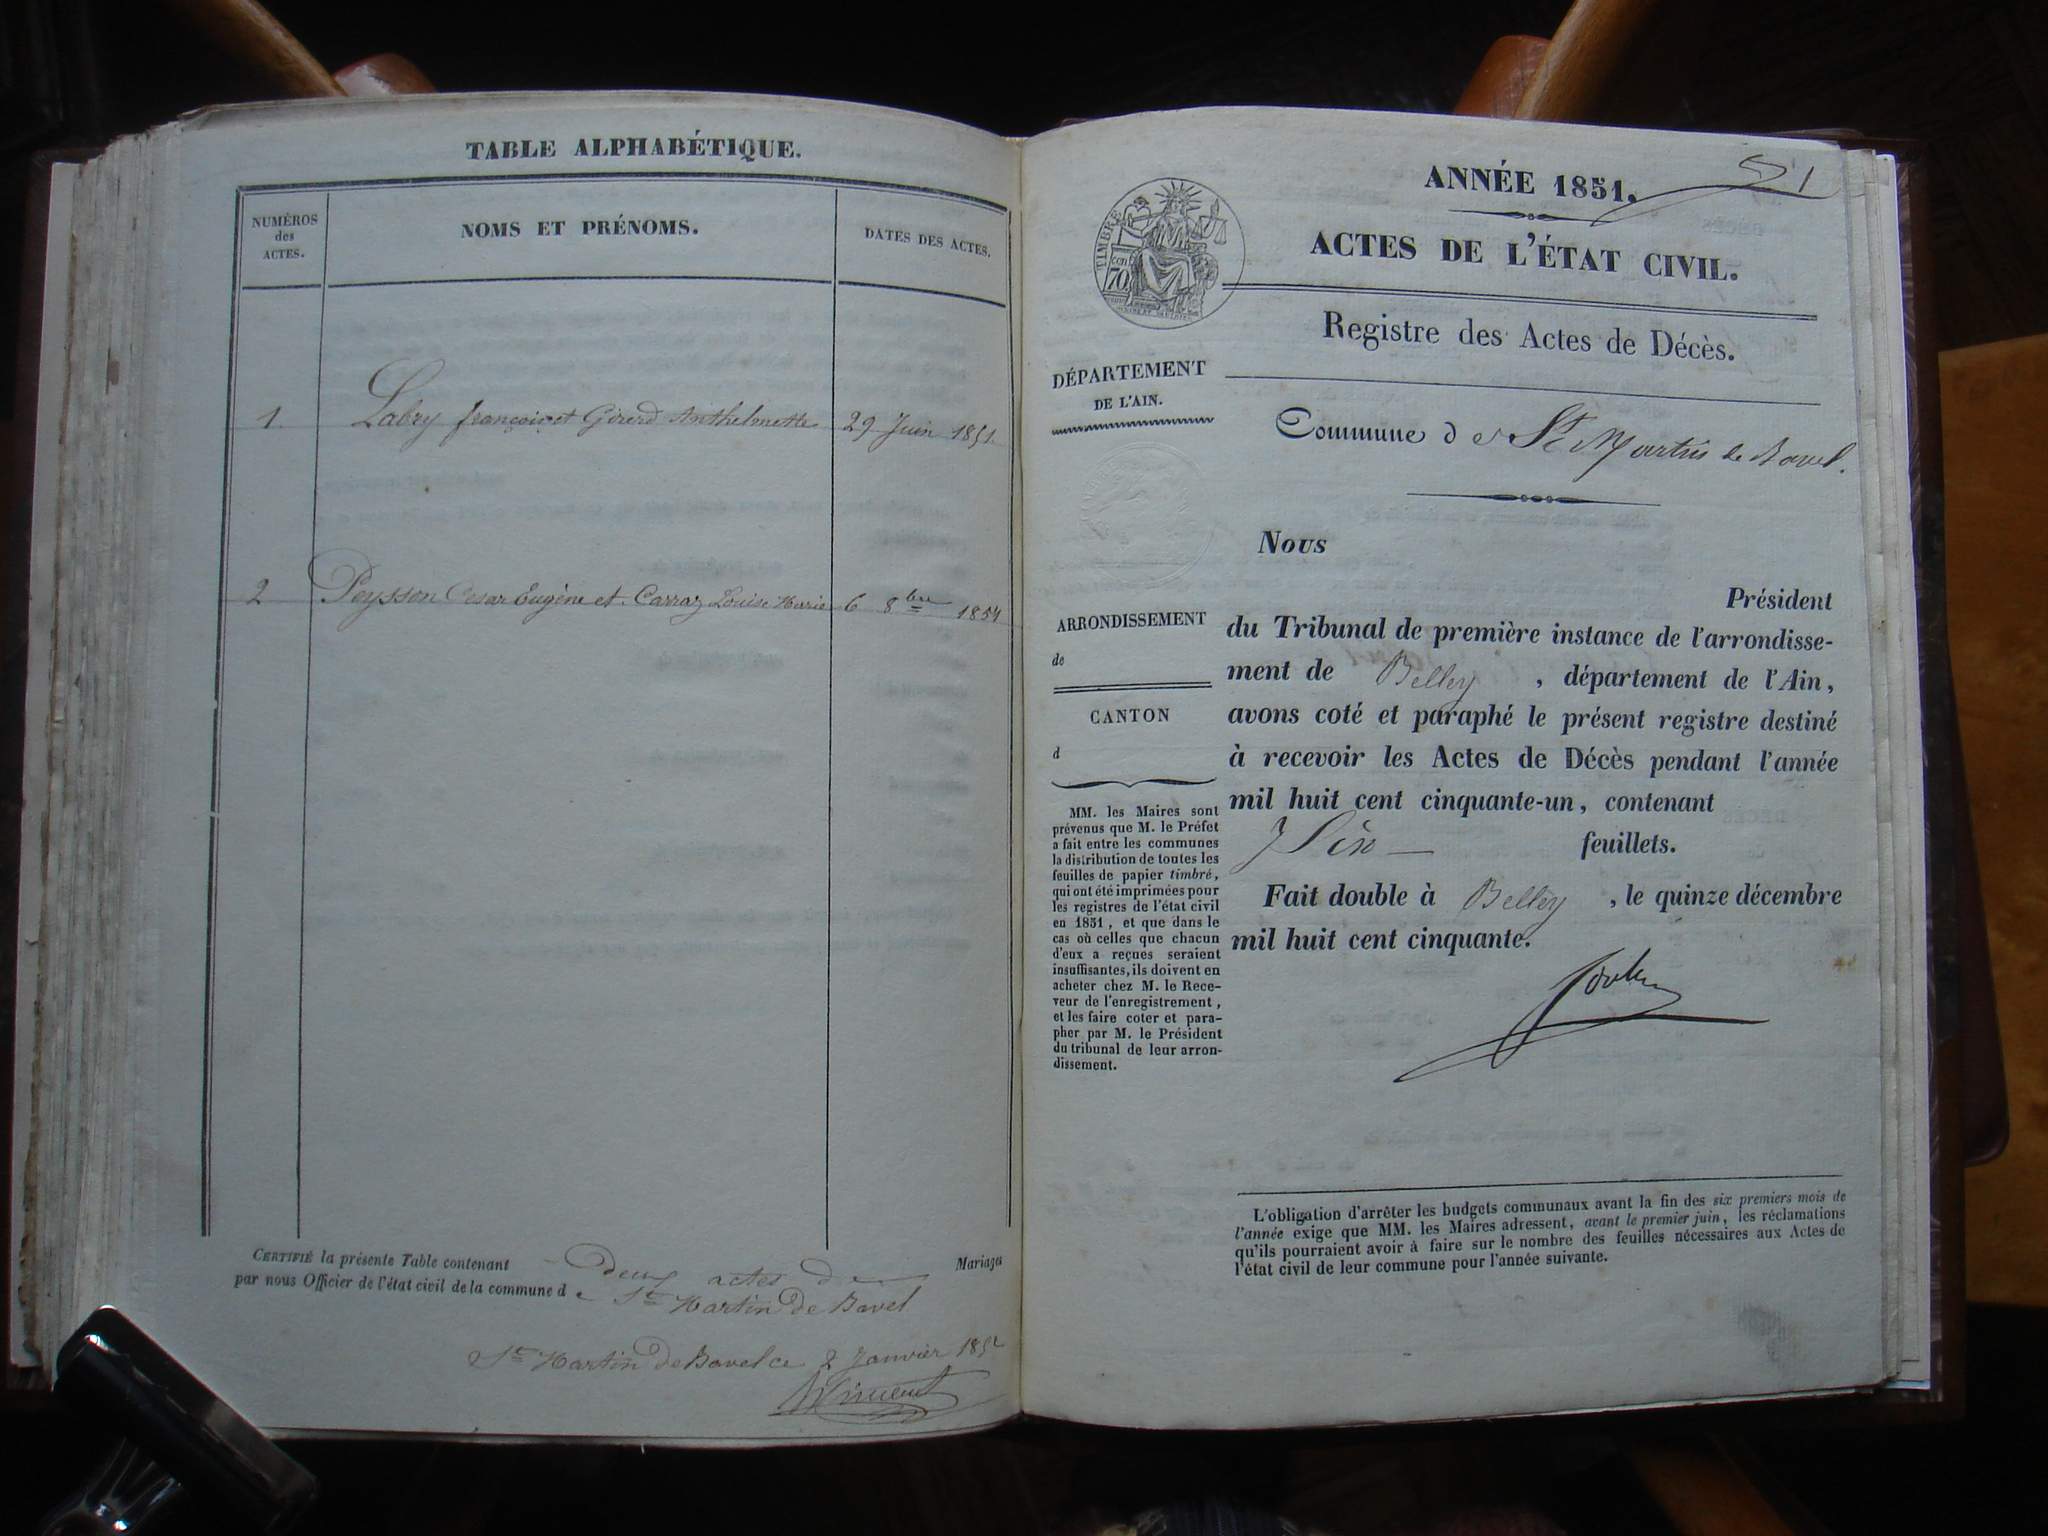 TABLE ALPHABÉTIQUE.
NUMÉROS
des
ACTES.
NOMS ET PRÉNOMS.
DATES DES ACTES.
1. Labry françois et Girerd Anthelmette 29 Juin 1851.
2 Peysson Cesar Eugène et Carraz Louise Marie 6 8bre 1851
CERTIFIÉ la présente Table contenant deux actes de Mariages
par nous Officier de l'état civil de la commune de St Martin de Bavel
St Martin de Bavel ce 2 Janvier 1852
ANNÉE 1851.
1
ACTES DE L'ÉTAT CIVIL.
TIMBRE
70
Registre des Actes de Décès.
DÉPARTEMENT
DE L'AIN.
Commune de St Martin de Bavel.
ARRONDISSEMENT
de
CANTON
d
MM. les Maires sont
prévenus que M. le Préfet
a fait entre les communes
la distribution de toutes les
feuilles de papier timbré,
qui ont été imprimées pour
les registres de l'état civil
en 1851, et que dans le
cas où celles que chacun
d'eux a reçues seraient
insuffisantes, ils doivent en
acheter chez M. le Rece-
veur de l'enregistrement,
et les faire coter et para-
pher par M. le Président
du tribunal de leur arron-
dissement.
Nous
Président
du Tribunal de première instance de l'arrondisse-
ment de Belley, département de l'Ain,
avons coté et paraphé le présent registre destiné
à recevoir les Actes de Décès pendant l'année
mil huit cent cinquante-un, contenant
feuillets.
Fait double à Belley, le quinze décembre
mil huit cent cinquante.
L'obligation d'arrêter les budgets communaux avant la fin des six premiers mois de
l'année exige que MM. les Maires adressent, avant le premier juin, les réclamations
qu'ils pourraient avoir à faire sur le nombre des feuilles nécessaires aux Actes de
l'état civil de leur commune pour l'année suivante.